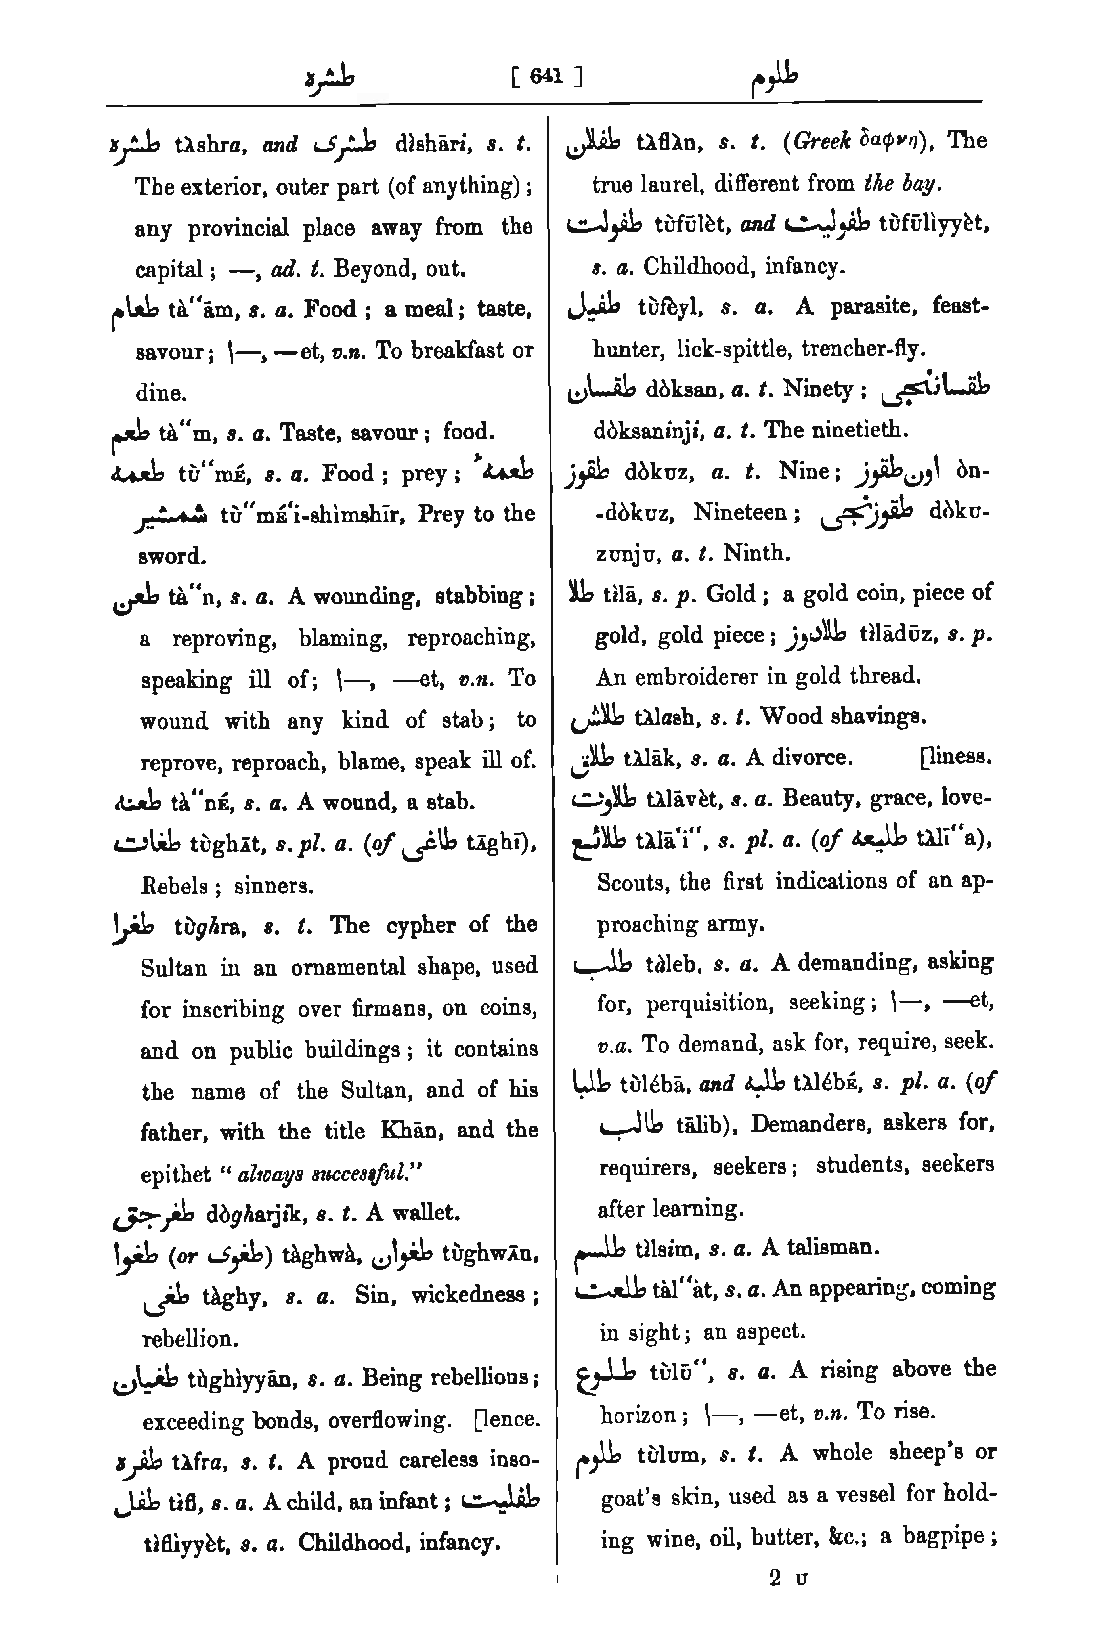 طشره [ 641 ] طلوم
طشره tλshra, and طشری dìshāri, s. t.
The exterior, outer part (of anything);
any provincial place away from the
capital; —, ad. t. Beyond, out.
طعام tà“ām, s. a. Food; a meal; taste,
savour; \—, —et, v.n. To breakfast or
dine.
طعم tà“m, s. a. Taste, savour; food.
طعمه tù“mÉ, s. a. Food; prey; طعمهٔ
شمشیر tù“mÉ‘i-shìmshīr, Prey to the
sword.
طعن tà“n, s. a. A wounding, stabbing;
a reproving, blaming, reproaching,
speaking ill of; \—, —et, v.n. To
wound with any kind of stab; to
reprove, reproach, blame, speak ill of.
طعنه tà“nÉ, s. a. A wound, a stab.
طغات tùghāt, s. pl. a. (of طاغی tāghī),
Rebels; sinners.
طغرا tùghra, s. t. The cypher of the
Sultan in an ornamental shape, used
for inscribing over firmans, on coins,
and on public buildings; it contains
the name of the Sultan, and of his
father, with the title Khān, and the
epithet “always successful.”
طغرجق dògharjik, s. t. A wallet.
طغوا (or طغوی) tàghwà, طغوان tùghwān,
طغی tàghy, s. a. Sin, wickedness;
rebellion.
طغیان tùghìyyān, s. a. Being rebellious;
exceeding bonds, overflowing. [lence.
طفره tλfra, s. t. A proud careless inso-
طفل tìfl, s. a. A child, an infant; طفلیت
tìflìyyèt, s. a. Childhood, infancy.
طفلان tλflλn, s. t. (Greek δαφνη), The
true laurel, different from the bay.
طفولت tùfūlèt, and طفولیت tùfūlìyyèt,
s. a. Childhood, infancy.
طفیل tùfèyl, s. a. A parasite, feast-
hunter, lick-spittle, trencher-fly.
طقسان dòksan, a. t. Ninety; طقسانجی
dòksaninji, a. t. The ninetieth.
طقوز dòkuz, a. t. Nine; اون طقوز òn-
-dòkuz, Nineteen; طقوزنجی dòku-
zunju, a. t. Ninth.
طلا tìlā, s. p. Gold; a gold coin, piece of
gold, gold piece; طلادوز tìlādūz, s. p.
An embroiderer in gold thread.
طلاش tλlash, s. t. Wood shavings.
طلاق tλlāk, s. a. A divorce. [liness.
طلاوت tλlāvèt, s. a. Beauty, grace, love-
طلائع tλlā‘i“, s. pl. a. (of طلیعه tλlī“a),
Scouts, the first indications of an ap-
proaching army.
طلب tàleb, s. a. A demanding, asking
for, perquisition, seeking; \—, —et,
v.a. To demand, ask for, require, seek.
طلبا tùlébā, and طلبه tλlébÉ, s. pl. a. (of
طالب tālib), Demanders, askers for,
requirers, seekers; students, seekers
after learning.
طلسم tìlsim, s. a. A talisman.
طلعت tàl“àt, s. a. An appearing, coming
in sight; an aspect.
طلوع tùlū“, s. a. A rising above the
horizon; \—, —et, v.n. To rise.
طلوم tùlum, s. t. A whole sheep's or
goat's skin, used as a vessel for hold-
ing wine, oil, butter, &c.; a bagpipe;
2 U